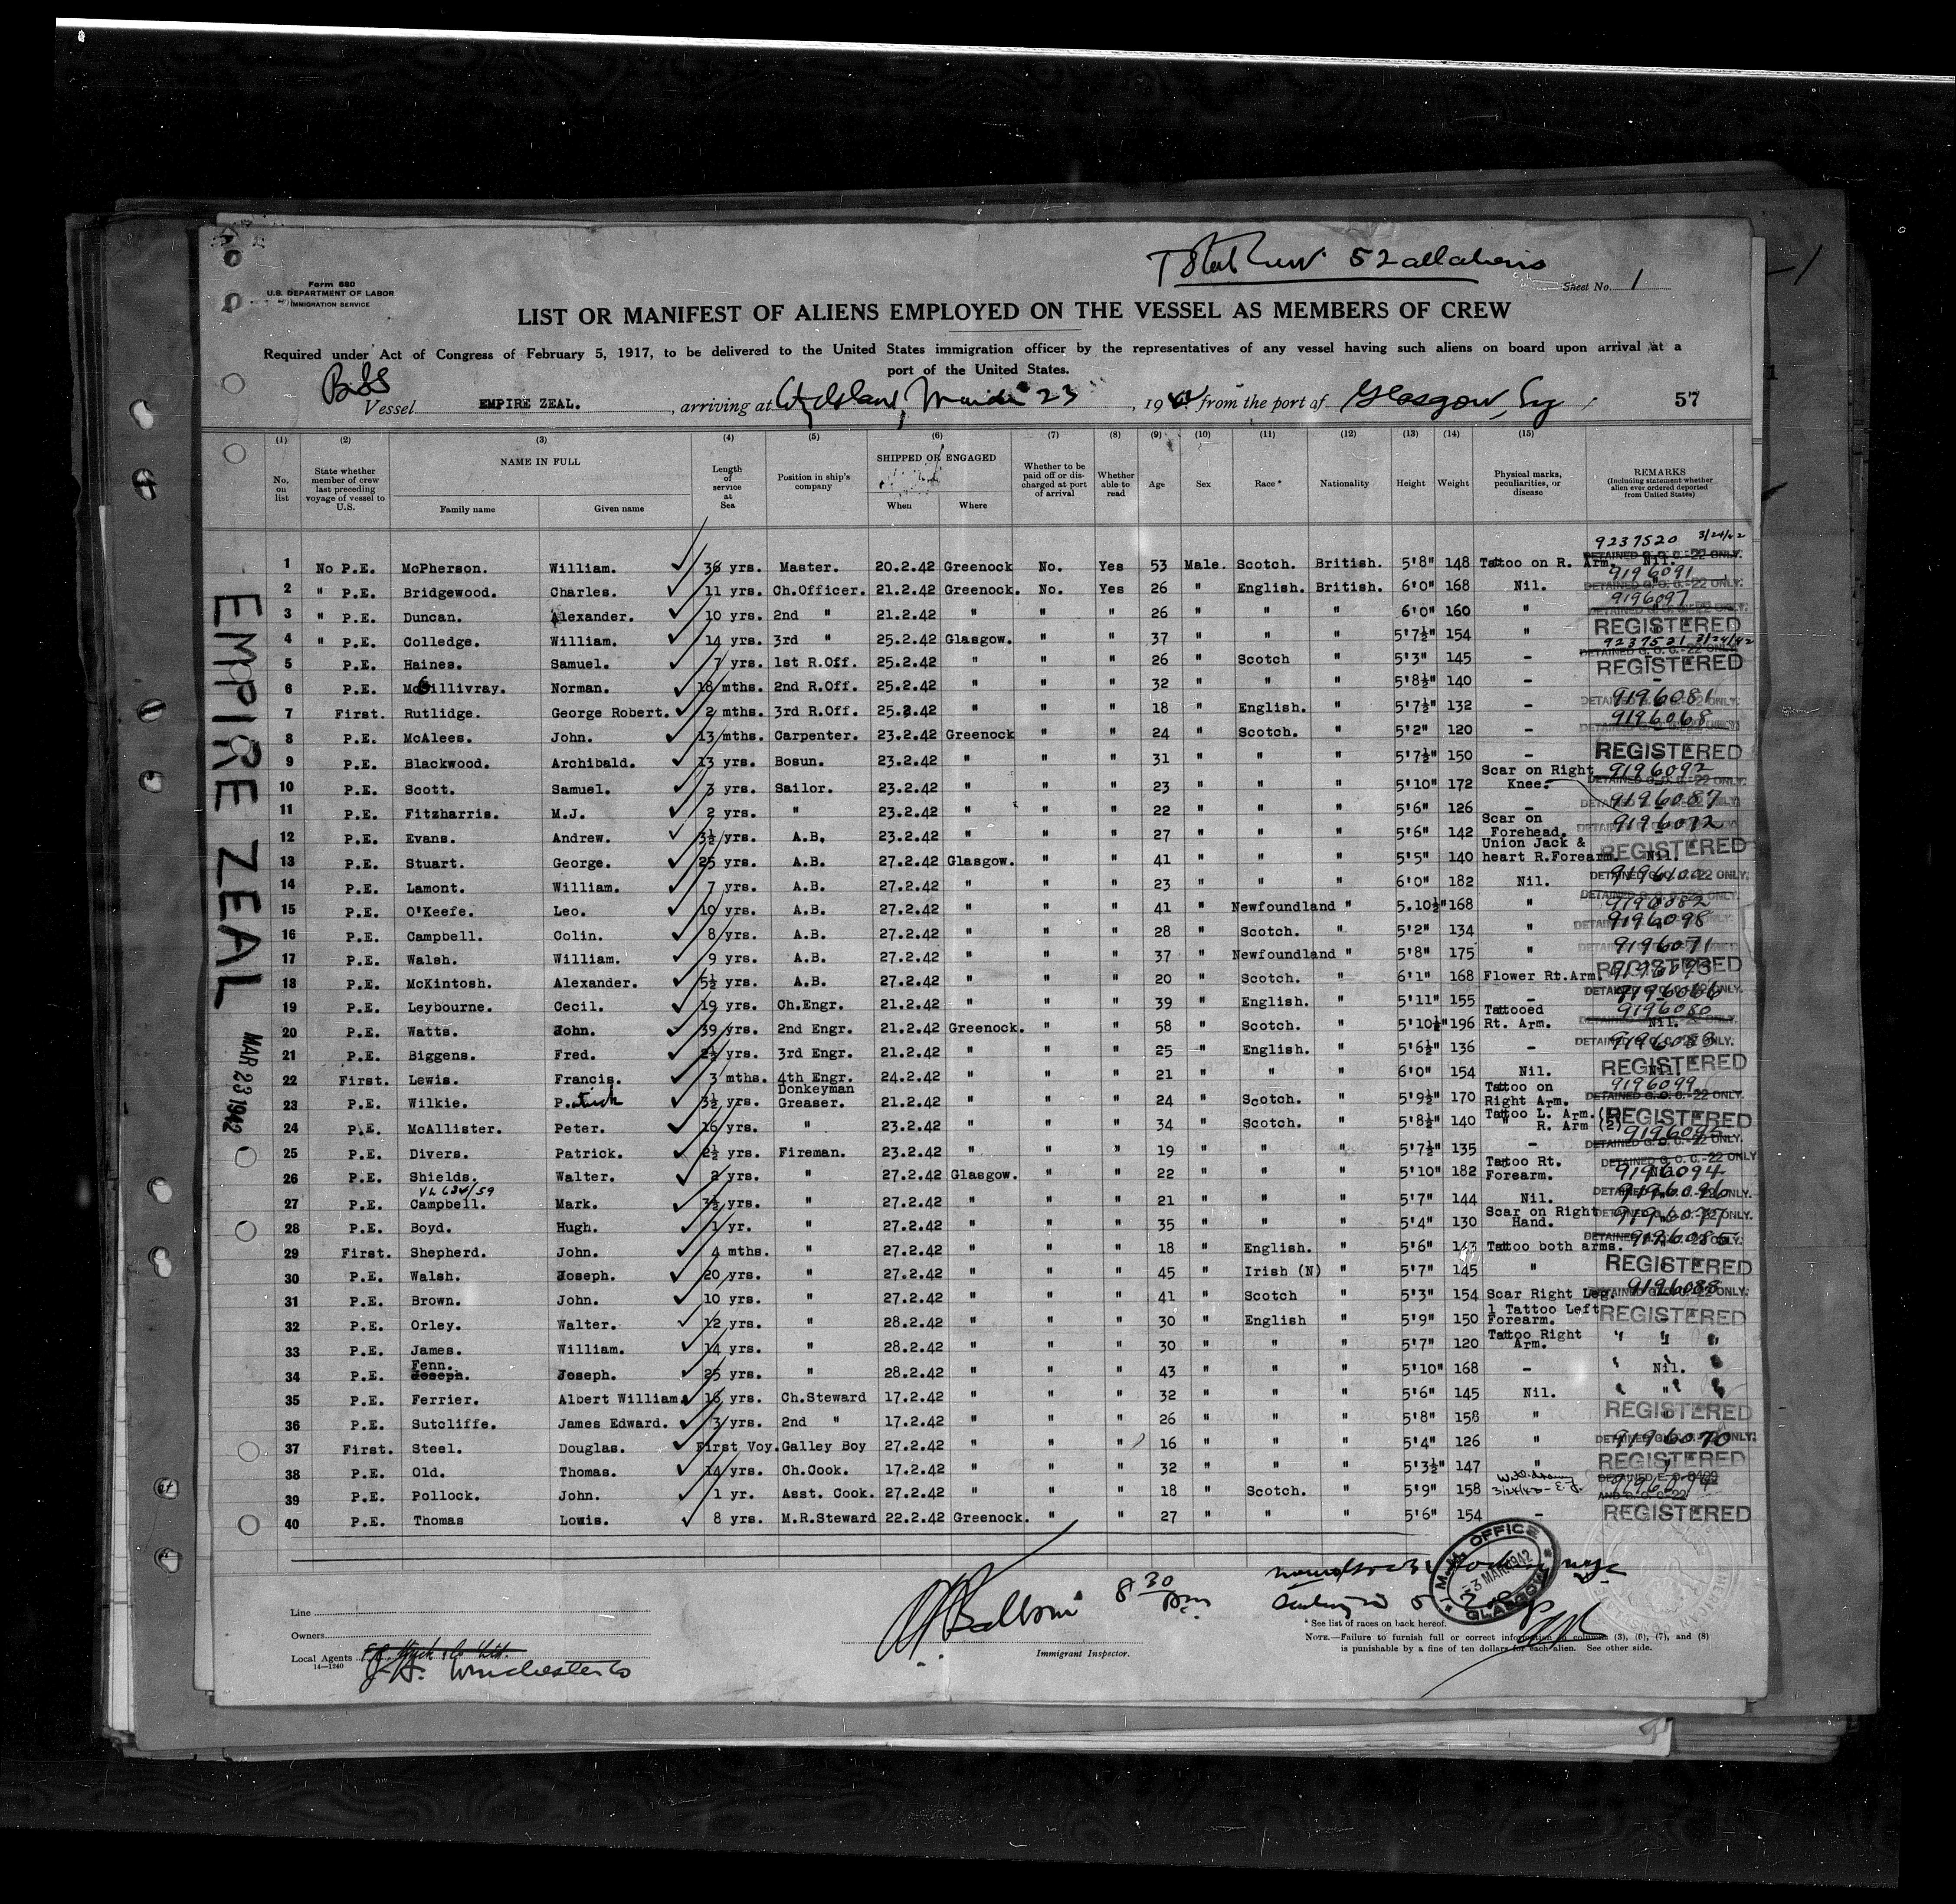 Total Crew 52 all aliens
Form 680
U.S. DEPARTMENT OF LABOR
IMMIGRATION SERVICE
Sheet No. 1
LIST OR MANIFEST OF ALIENS EMPLOYED ON THE VESSEL AS MEMBERS OF CREW
Required under Act of Congress of February 5, 1917, to be delivered to the United States immigration officer by the representatives of any vessel having such aliens on board upon arrival at a
port of the United States.
Vessel EMPIRE ZEAL. , arriving at March 23 , 19 from the port of Glasgow, 57
(1) (2) (3) (4) (5) (6) (7) (8) (9) (10) (11) (12) (13) (14) (15)
No. on list State whether member of crew last preceding voyage of vessel to U.S. NAME IN FULL Family name Given name Length of service at Sea Position in ship's company SHIPPED OR ENGAGED When Where Whether to be paid off or discharged at port of arrival Whether able to read Age Sex Race* Nationality Height Weight Physical marks, peculiarities, or disease REMARKS (Including statement whether alien ever ordered deported from United States)
9237520 3/24/42
1 No P.E. McPherson. William. 36 yrs. Master. 20.2.42 Greenock No. Yes 53 Male. Scotch. British. 5'8" 148 Tattoo on R. Arm. Nil. DETAINED G. O. C.-22 ONLY.
2 " P.E. Bridgewood. Charles. 11 yrs. Ch.Officer. 21.2.42 Greenock. No. Yes 26 " English. British. 6'0" 168 Nil. 9196091 DETAINED G. O. C.-22 ONLY.
3 " P.E. Duncan. Alexander. 10 yrs. 2nd " 21.2.42 " " " 26 " " " 6'0" 160 " 9196097
4 " P.E. Colledge. William. 14 yrs. 3rd " 25.2.42 Glasgow. " " 37 " " " 5'7½" 154 " REGISTERED
5 P.E. Haines. Samuel. 7 yrs. 1st R.Off. 25.2.42 " " " 26 " Scotch " 5'3" 145 - 9237521 3/24/42 DETAINED G. O. C.-22 ONLY.
6 P.E. McGillivray. Norman. 18 mths. 2nd R.Off. 25.2.42 " " " 32 " " " 5'8½" 140 - REGISTERED
7 First. Rutlidge. George Robert. 2 mths. 3rd R.Off. 25.2.42 " " " 18 " English. " 5'7½" 132 - 9196081
8 P.E. McAlees. John. 13 mths. Carpenter. 23.2.42 Greenock " " 24 " Scotch. " 5'2" 120 - 9196068
9 P.E. Blackwood. Archibald. 13 yrs. Bosun. 23.2.42 " " " 31 " " " 5'7½" 150 - REGISTERED
10 P.E. Scott. Samuel. 3 yrs. Sailor. 23.2.42 " " " 23 " " " 5'10" 172 Scar on Right Knee. 9196092
11 P.E. Fitzharris. M.J. 2 yrs. " 23.2.42 " " " 22 " " " 5'6" 126 - 9196087
12 P.E. Evans. Andrew. 3½ yrs. A.B. 23.2.42 " " " 27 " " " 5'6" 142 Scar on Forehead. 9196072
13 P.E. Stuart. George. 25 yrs. A.B. 27.2.42 Glasgow. " " 41 " " " 5'5" 140 Union Jack & heart R.Forearm. Nil. REGISTERED
14 P.E. Lamont. William. 7 yrs. A.B. 27.2.42 " " " 23 " " " 6'0" 182 Nil.
15 P.E. O'Keefe. Leo. 10 yrs. A.B. 27.2.42 " " " 41 " Newfoundland " 5.10½" 168 " 9196082
16 P.E. Campbell. Colin. 8 yrs. A.B. 27.2.42 " " " 28 " Scotch. " 5'2" 134 " 9196098
17 P.E. Walsh. William. 9 yrs. A.B. 27.2.42 " " " 37 " Newfoundland " 5'8" 175 " 9196071
18 P.E. McKintosh. Alexander. 5½ yrs. A.B. 27.2.42 " " " 20 " Scotch. " 6'1" 168 Flower Rt.Arm. REGISTERED
19 P.E. Leybourne. Cecil. 19 yrs. Ch.Engr. 21.2.42 " " " 39 " English. " 5'11" 155 - 9196066
20 P.E. Watts. John. 39 yrs. 2nd Engr. 21.2.42 Greenock. " " 58 " Scotch. " 5'10½" 196 Tattooed Rt. Arm. 9196080 Nil.
21 P.E. Biggens. Fred. 2½ yrs. 3rd Engr. 21.2.42 " " " 25 " English. " 5'6½" 136 -
22 First. Lewis. Francis. 3 mths. 4th Engr. 24.2.42 " " " 21 " " " 6'0" 154 Nil. Nil. REGISTERED
23 P.E. Wilkie. Patrick 3½ yrs. Donkeyman Greaser. 21.2.42 " " " 24 " Scotch. " 5'9½" 170 Tattoo on Right Arm. 9196099 DETAINED G. O. C.-22 ONLY.
24 P.E. McAllister. Peter. 16 yrs. " 23.2.42 " " " 34 " Scotch. " 5'8½" 140 Tattoo L. Arm. " R. Arm (2) REGISTERED
25 P.E. Divers. Patrick. 2½ yrs. Fireman. 23.2.42 " " " 19 " " " 5'7½" 135 - 9196095 DETAINED G. O. C.-22 ONLY.
26 P.E. Shields. Walter. 2 yrs. " 27.2.42 Glasgow. " " 22 " " " 5'10" 182 Tattoo Rt. Forearm. 9196094 DETAINED G. O. C.-22 ONLY
27 P.E. Campbell. Mark. 3½ yrs. " 27.2.42 " " " 21 " " " 5'7" 144 Nil. 9196096
28 P.E. Boyd. Hugh. 1 yr. " 27.2.42 " " " 35 " " " 5'4" 130 Scar on Right Hand. 9196077
29 First. Shepherd. John. 4 mths. " 27.2.42 " " " 18 " English. " 5'6" 143 Tattoo both arms. 9196085
30 P.E. Walsh. Joseph. 20 yrs. " 27.2.42 " " " 45 " Irish (N) " 5'7" 145 " REGISTERED
31 P.E. Brown. John. 10 yrs. " 27.2.42 " " " 41 " Scotch " 5'3" 154 Scar Right Leg. 9196088
32 P.E. Orley. Walter. 12 yrs. " 28.2.42 " " " 30 " English " 5'9" 150 1 Tattoo Left Forearm. REGISTERED
33 P.E. James. William. 14 yrs. " 28.2.42 " " " 30 " " " 5'7" 120 Tattoo Right Arm. " " "
34 P.E. Fenn. Joseph. Joseph. 25 yrs. " 28.2.42 " " " 43 " " " 5'10" 168 - " Nil. "
35 P.E. Ferrier. Albert William. 16 yrs. Ch.Steward 17.2.42 " " " 32 " " " 5'6" 145 Nil. " " "
36 P.E. Sutcliffe. James Edward. 3 yrs. 2nd " 17.2.42 " " " 26 " " " 5'8" 158 " REGISTERED
37 First. Steel. Douglas. First Voy. Galley Boy 27.2.42 " " " 16 " " " 5'4" 126 " 9196070
38 P.E. Old. Thomas. 14 yrs. Ch.Cook. 17.2.42 " " " 32 " " " 5'3½" 147 " REGISTERED
39 P.E. Pollock. John. 1 yr. Asst. Cook. 27.2.42 " " " 18 " Scotch. " 5'9" 158
40 P.E. Thomas Lowis. 8 yrs. M.R.Steward 22.2.42 Greenock. " " 27 " " " 5'6" 154 - REGISTERED
EMPIRE ZEAL
MAR 23 1942
8 30 pm
M.M. OFFICE
3 MAR 1942
GLASGOW
Line
Owners
Local Agents
J. H. Winchester Co
14—1240
Immigrant Inspector.
* See list of races on back hereof.
NOTE.—Failure to furnish full or correct information in columns (3), (6), (7), and (8)
is punishable by a fine of ten dollars for each alien. See other side.